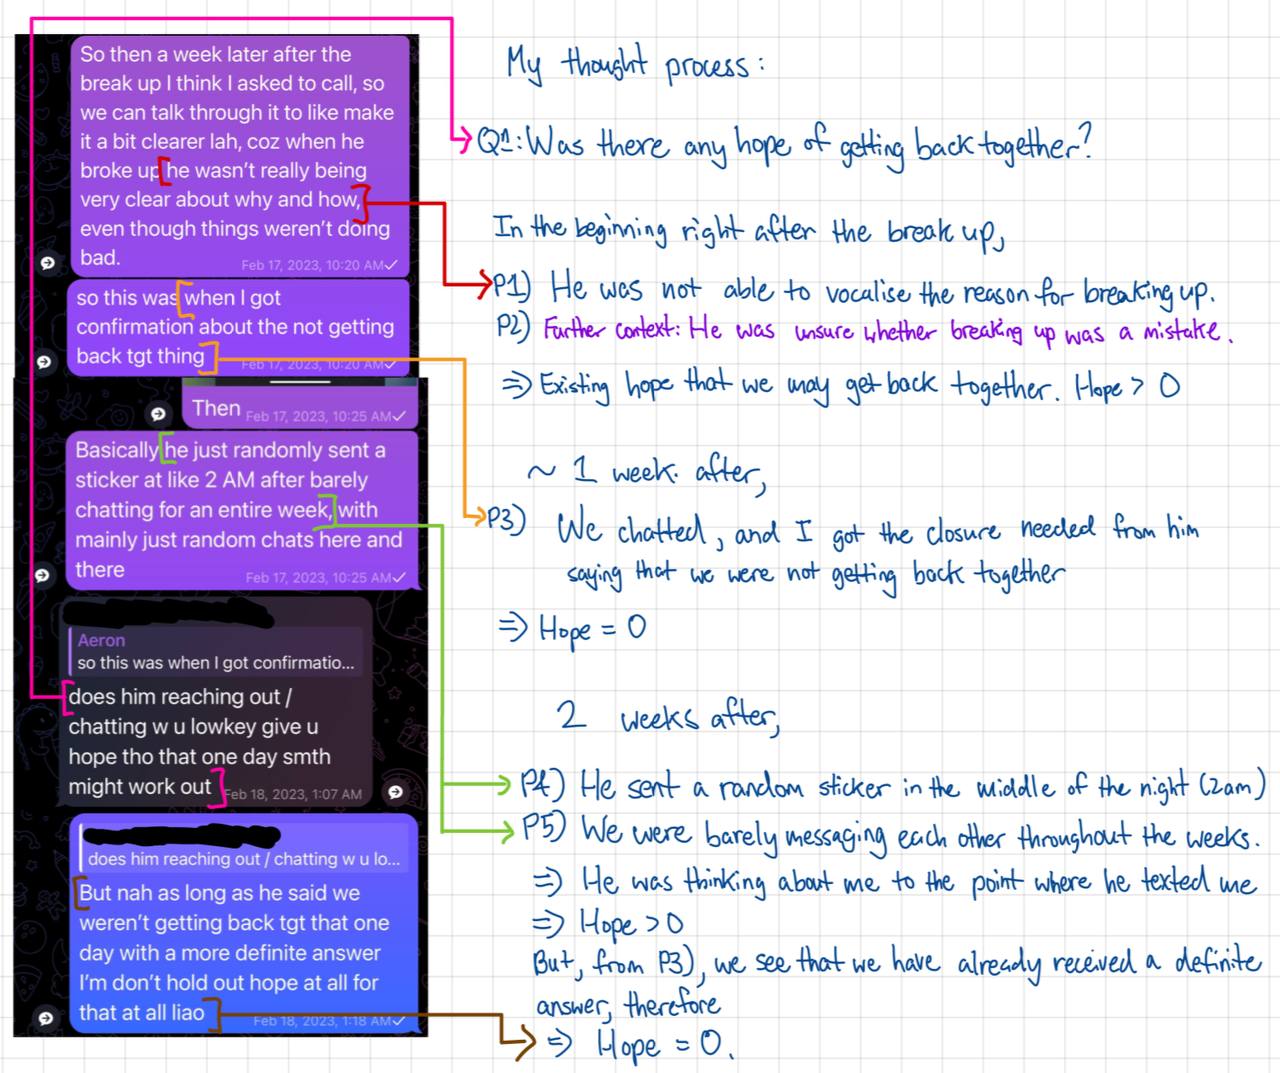 So then a week later after the
break up I think I asked to call, so
we can talk through it to like make
it a bit clearer lah, coz when he
broke up he wasn't really being
very clear about why and how,
even though things weren't doing
bad.
Feb 17, 2023, 10:20 AM
so this was when I got
confirmation about the not getting
back tgt thing
Feb 17, 2023, 10:20 AM
Then
Feb 17, 2023, 10:25 AM
Basically he just randomly sent a
sticker at like 2 AM after barely
chatting for an entire week, with
mainly just random chats here and
there
Feb 17, 2023, 10:25 AM
Aeron
so this was when I got confirmatio...
does him reaching out /
chatting w u lowkey give u
hope tho that one day smth
might work out
Feb 18, 2023, 1:07 AM
does him reaching out / chatting w u lo...
But nah as long as he said we
weren't getting back tgt that one
day with a more definite answer
I'm don't hold out hope at all for
that at all liao
Feb 18, 2023, 1:18 AM
My thought process:
Q1: Was there any hope of getting back together?
In the beginning right after the break up,
P1) He was not able to vocalise the reason for breaking up.
P2) Further context: He was unsure whether breaking up was a mistake.
⇒ Existing hope that we may get back together. Hope > 0
~ 1 week after,
P3) We chatted, and I got the closure needed from him
saying that we were not getting back together
⇒ Hope = 0
2 weeks after,
P4) He sent a random sticker in the middle of the night (2am)
P5) We were barely messaging each other throughout the weeks.
⇒ He was thinking about me to the point where he texted me
⇒ Hope > 0
But, from P3), we see that we have already received a definite
answer, therefore
⇒ Hope = 0.